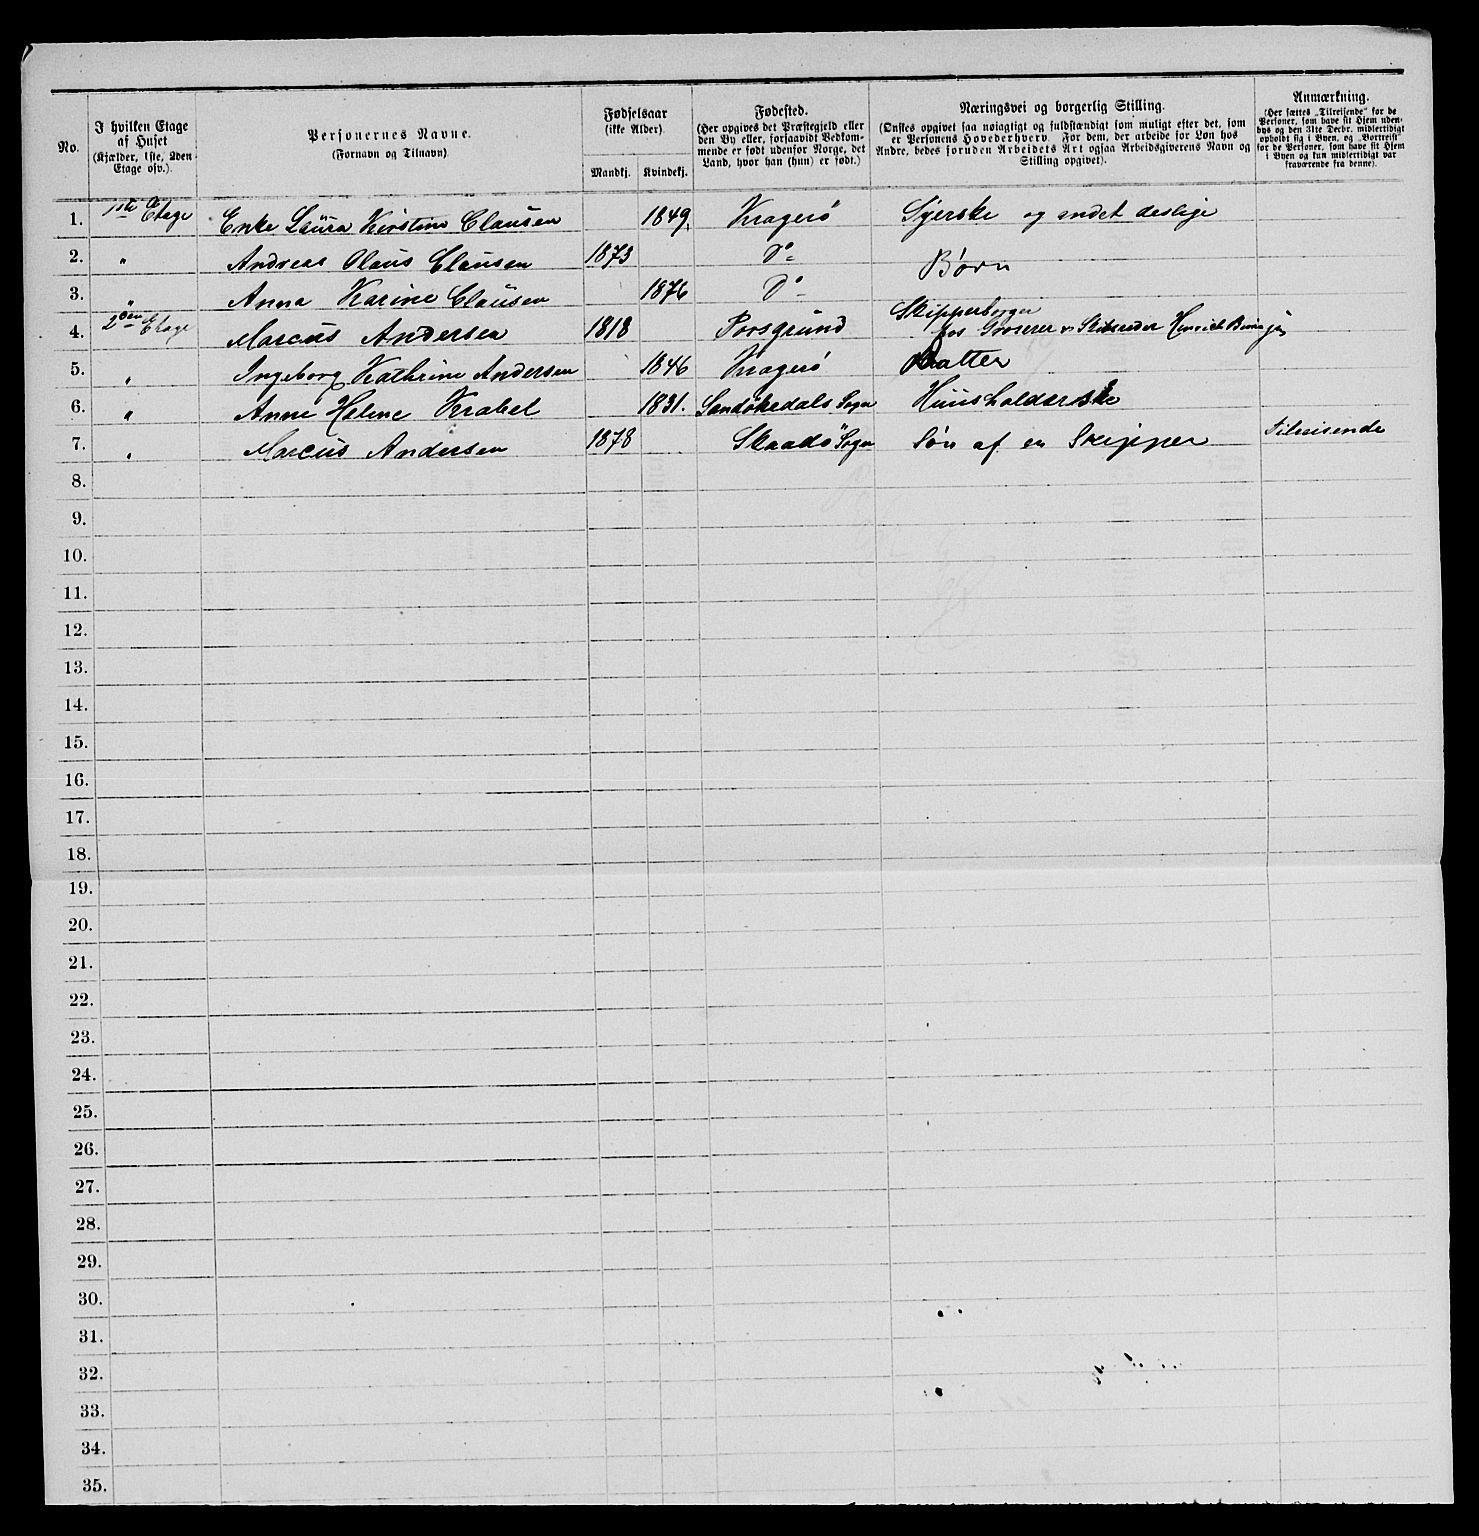 No.
I hvilken Etage
af Huset
(Kjælder, 1ste, 2den
Etage osv.).
Personernes Navne.
(Fornavn og Tilnavn)
Fødselsaar
(ikke Alder).
Mandkj. Kvindekj.
Fødested.
(Her opgives det Præstegjeld eller
den By eller, forsaavidt Vedkom-
mende er født udenfor Norge, det
Land, hvor han (hun) er født.)
Næringsvei og borgerlig Stilling.
(Ønskes opgivet saa nøiagtigt og fuldstændigt som muligt efter det, som
er Personens Hovederhverv. For dem, der arbeide for Løn hos
Andre, bedes foruden Arbeidets Art ogsaa Arbeidsgiverens Navn og
Stilling opgivet).
Anmærkning.
(Her sættes „Tilreisende“ for de
Personer, som have sit Hjem uden-
bys og den 31te Decbr. midlertidigt
opholdt sig i Byen, og „Bortreist“
for de Personer, som have sit Hjem
i Byen og kun midlertidigt var
fraværende fra denne).
1. 1ste Etage Enke Laura Kirstine Clausen 1849. Kragerö Syerske og andet deslige
2. " Andreas Olaus Clausen 1873 Do Børn
3. " Anna Karine Clausen 1876 Do
4. 2den Etage Marcus Andersen 1818 Porsgrund Skipperborger
hos Grosserer Skibsreder Henrich
5. " Ingeborg Kathrine Andersen 1846 Kragerö Datter
6. " Anne Helene Krabel 1831. Sandökedals Sogn Huusholderske
7. " Marcus Andersen 1878 Skaadö Sogn Søn af en Skipper Tilreisende
8.
9.
10.
11.
12.
13.
14.
15.
16.
17.
18.
19.
20.
21.
22.
23.
24.
25.
26.
27.
28.
29.
30.
31.
32.
33.
34.
35.